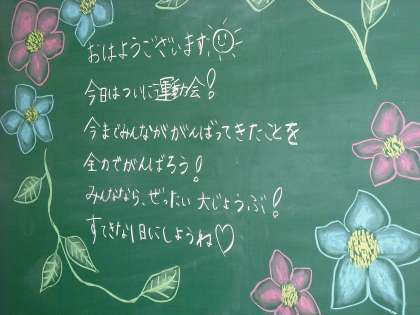 おはようございます。
今日はついに運動会!
今までみんながんばってきたことを
全力でがんばろう!
みんななら、ぜったい大じょうぶ!
すてきな1日にしようね♡